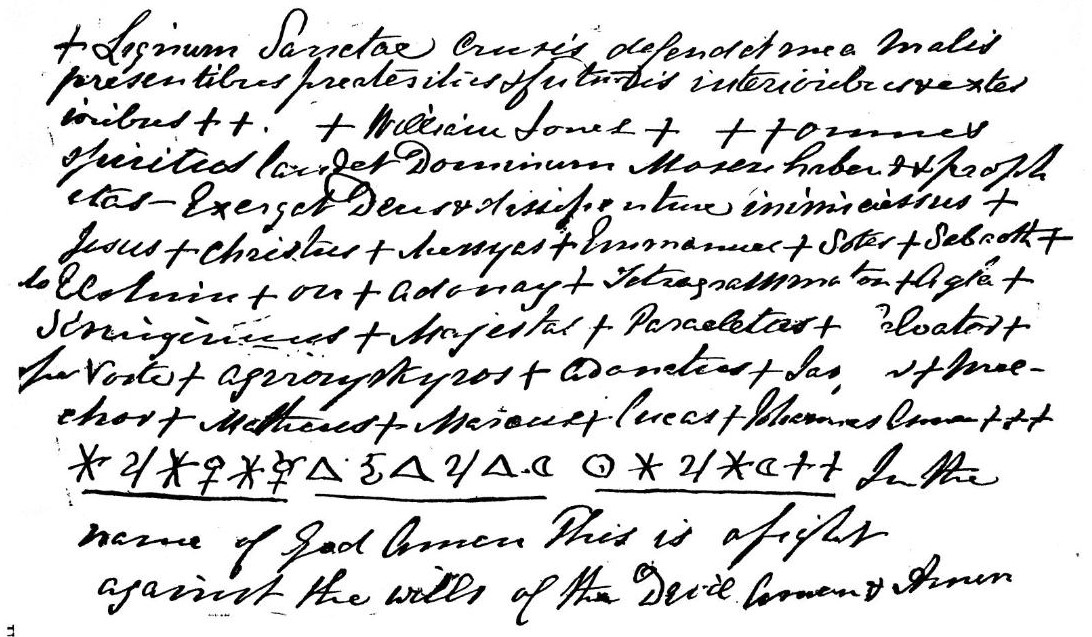 + Lignum Sanctae Crusis defendat me a malis
presentibus preateritus & futuris interioribus & exter
ioribus ++. + William Jones + ++ omnes
spiritus laudet Dominum Mosen habent & proph
etas - Exerget Deus & dissipentur inimiciessus +
Jesus + Christus + Messyas + Emmanuel + Soter + Sabaoth +
Elohim + on + Adonay + Tetragrammaton + Agla +
+ Majestas + Paracletus +
+ agirosyskyros + Adonetus +
chor + Matheus + Marcus + Lucas + Johannes Amen +++
✶ ♃ ✶ ♀ ✶ ☿ △ △ ♃ △ ☾ ☉ ✶ ♃ ✶ ☾ ++ In the
name of God Amen This is a fight
against the wills of the Devil Amen & Amen